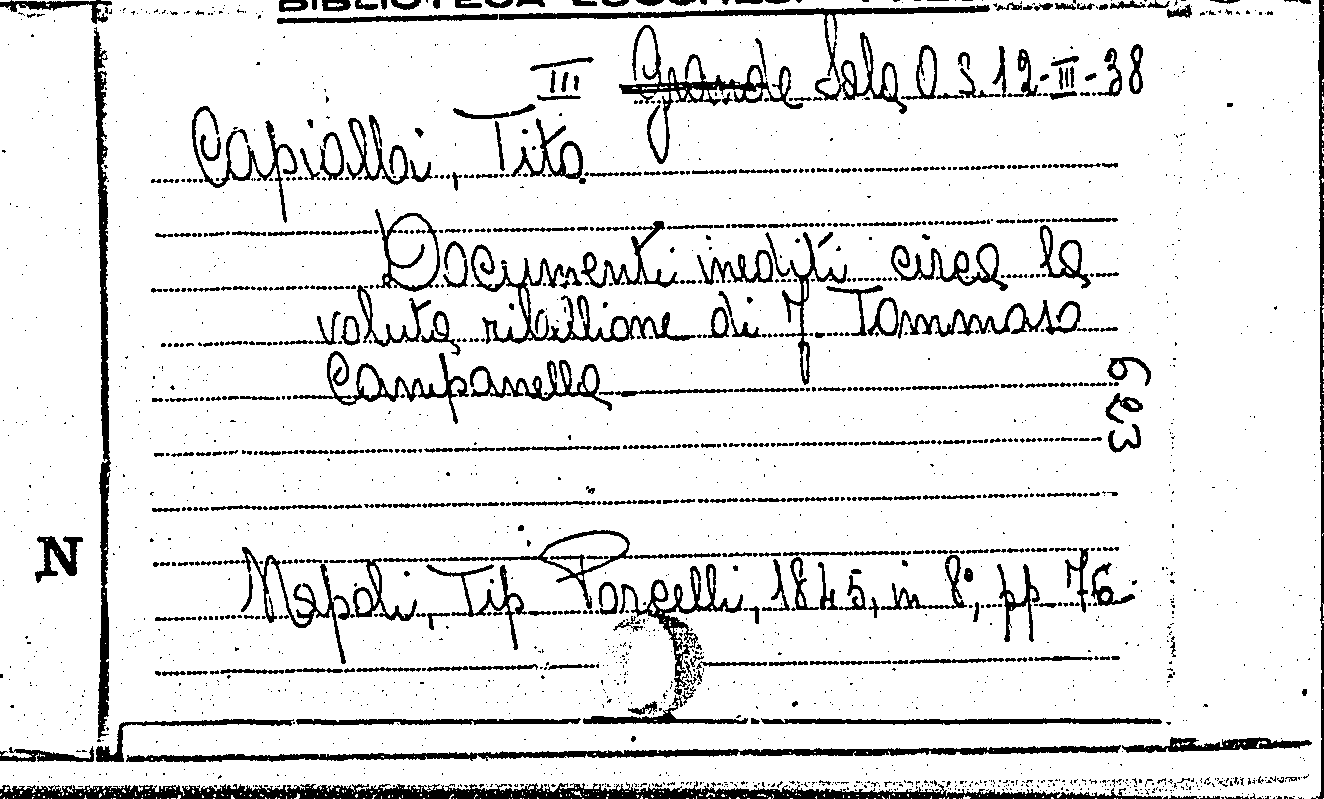 BIBLIOTECA LUCCHESI
III Grande Sala O. S. 12-III-38
Capialbi, Tito
Documenti inediti circa la
voluta ribellione di F. Tommaso
Campanella
623
N
Napoli, Tip. Porcelli, 1845, in 8°, pp 76.